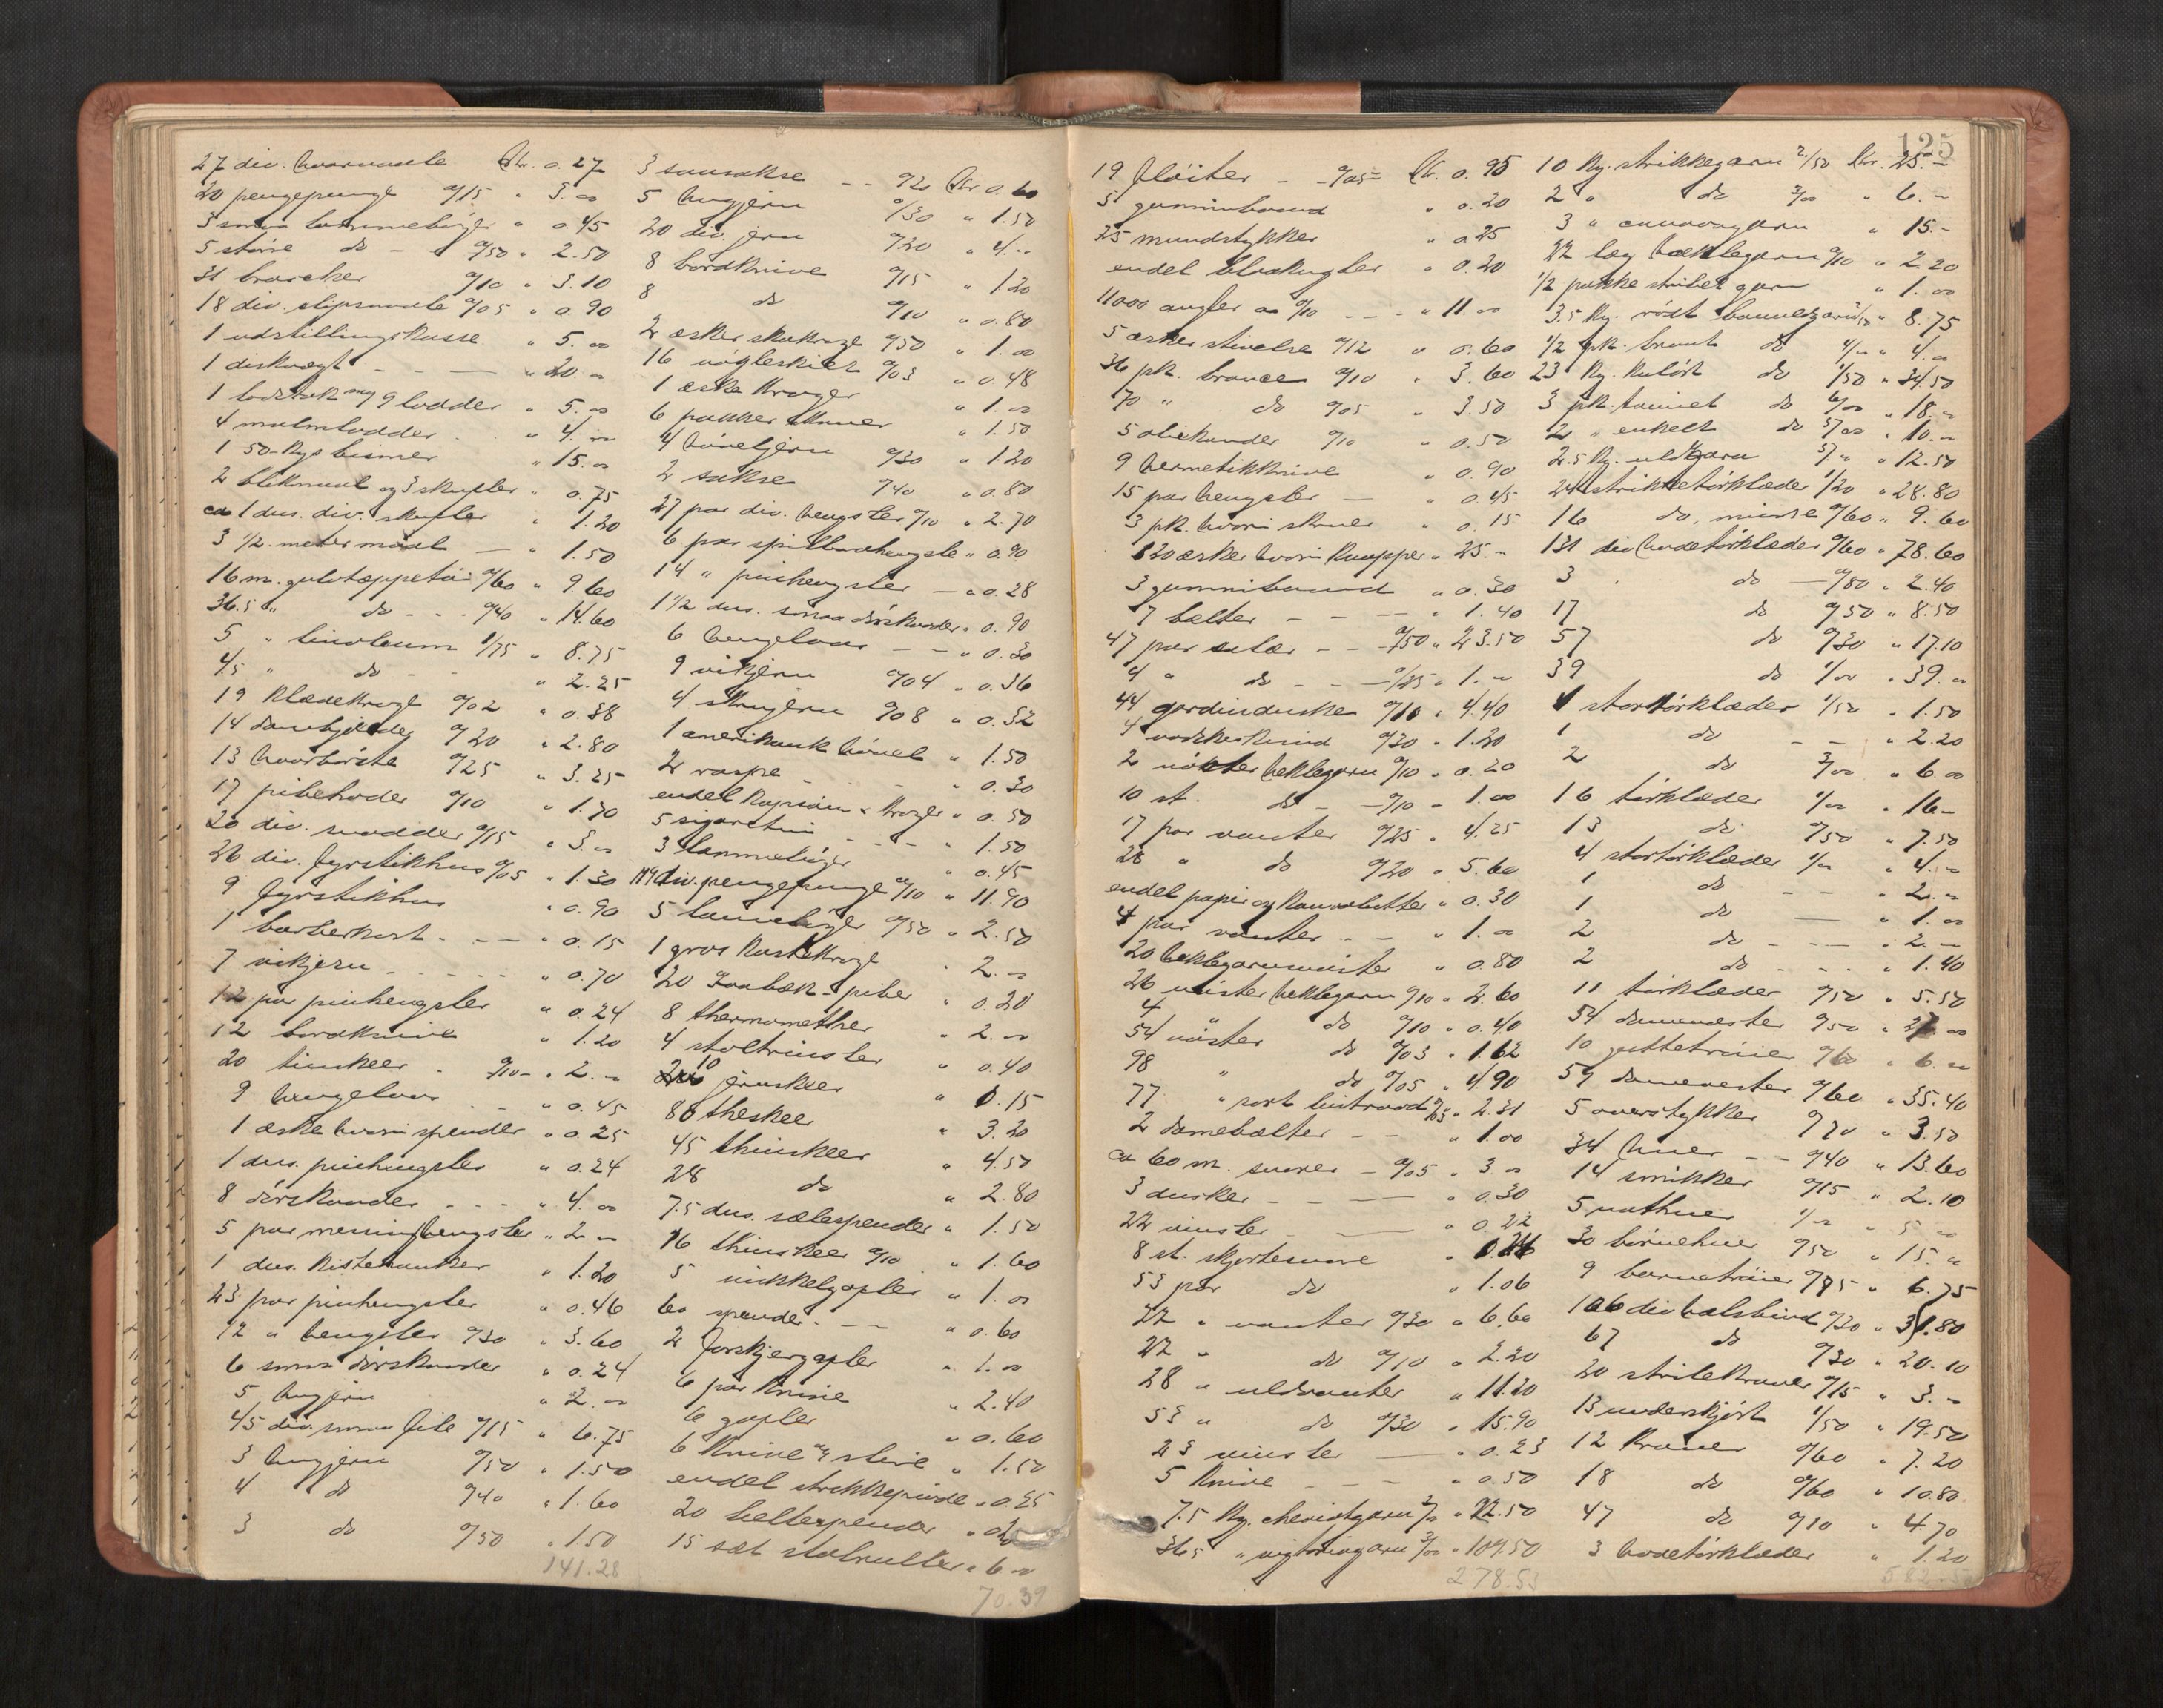 27 div. haarnaale Kr. 0.27
20 pengepunge 0/15 " 3.00
3 smaa lommebøger " 0.45
5 større do - 0/50 " 2.50
31 broscher 0/10 " 3.10
18 div. slipsnaale 0/05 " 0.90
1 udstillingskasse " 5.00
1 diskvægt - - " 20.00
1 lodstok og 9 lodder " 5.00
4 malmlodder " 4.00
1 50-kgs bismer " 15.00
2 blikmaal og 3 skufler " 0.75
ca 1 dus. div. skufler " 1.20
3 1/2 meter maal - " 1.50
16 m. gulvtæppetøi 0/60 " 9.60
36.5 " do - - 0/40 " 14.60
5 " linoleum 1/75 " 8.75
4.5 " do - " 2.25
19 klædekroge 0/02 " 0.38
14 0/20 " 2.80
13 haarbørste 0/25 " 3.25
17 pibehoder 0/10 " 1.70
20 div. snadder 0/15 " 3.00
26 div. fyrstikhus 0/05 " 1.30
9 fyrstikhus " 0.90
1 barberkost - - " 0.15
7 vikjern - - " 0.70
12 par pinhengsler " 0.24
12 bordknive " 1.20
20 tinskeer - 0/10 - " 2.00
9 hengelaas - " 0.45
1 æske hvori spender " 0.25
1 dus. pinhengsler " 0.24
8 dørskaader - - - " 4.00
5 par messinghengsler " 2.00
1 dus. kistehanker " 1.20
23 par pinhengsler " 0.46
12 " hengsler 0/30 " 3.60
6 smaa dørskaader " 0.24
5 hugjern " 2.00
45 div. smaa file 0/15 " 6.75
3 hugjern 0/50 " 1.50
4 do 0/40 " 1.60
3 do 0/50 " 1.50
141.28
3 sausakse - - 0/20 Kr 0.60
5 hugjern 0/30 " 1.50
20 div. jern 0/20 " 4.00
8 bordknive 0/15 " 1.20
8 do 0/10 " 0.80
2 æsker skakroge 0/50 " 1.00
16 nøgleskilt 0/03 " 0.48
1 æske kroger " 1.00
6 pakker skruer " 1.50
4 høveljern 0/30 " 1.20
2 sakse 0/40 " 0.80
27 par div. hengsler 0/10 " 2.70
6 par spilbordhengsle " 0.90
14 " pinhengsler - " 0.28
1 1/2 dus. smaa dørskaader " 0.90
6 hengelaas - - " 0.30
9 vikjern 0/04 " 0.36
4 skrujern 0/08 " 0.32
1 amerikansk høvel " 1.50
2 raspe - - " 0.30
endel kopsøm & kroger " 0.50
5 sigaretui - - - " 1.50
3 lommebøger " 0.45
119 div. pengepunge 0/10 " 11.90
5 lommebøger 0/50 " 2.50
1 gros kastekroge " 2.00
20 piber " 0.20
8 thermomether " 2.00
4 stoltrinsler " 0.40
10 jernskeer " 0.15
80 theskeer " 3.20
45 thinskeer " 4.50
28 do " 2.80
7.5 dus. sælespender " 1.50
16 thinskeer 0/10 " 1.60
5 nikkelgafler " 1.00
60 spender - - " 0.60
2 forskjærgafler " 1.00
6 par knive " 2.40
6 gafler " 0.60
6 knive og slire " 1.50
endel strikkepinde " 0.25
20 beltespender
15 sæt stolruller " 6.00
70.39
125
19 fløiter - - 0/05 = Kr. 0.95
5 gummibaand " 0.20
25 mundstykker " 0.25
endel blaakugler " 0.20
11000 angler 0/10 - - - " 11.00
5 æsker stivelse 0/12 " 0.60
36 pk. bronce 0/10 " 3.60
70 " do 0/05 " 3.50
5 oliekander 0/10 " 0.50
9 hermetikknive " 0.90
15 par hengsler - " 0.45
3 pk. hvori skruer " 0.15
120 æsker hvori knapper " 25.-
3 gummibaand " 0.30
7 belter - - - " 1.40
47 par saler - - 0/50 " 23.50
4 " do - - 0/25 " 1.00
44 gardinduske 0/10 " 4.40
4 vadskeskind 0/30 " 1.20
2 nøkler heklegarn 0/10 " 0.20
10 st. do - 0/10 " 1.00
17 par vanter 0/25 " 4.25
28 " do 0/20 " 5.60
endel papir og konvolutter " 0.30
4 par vanter - - " 1.00
20 heklegarnsnøster " 0.80
26 nøster heklegarn 0/10 " 2.60
4 " do 0/10 " 0.40
54 nøster do 0/03 " 1.62
98 " do 0/05 " 4.90
77 " sort lintraad 0/03 " 2.31
2 damebælter - - " 1.00
ca 60 m. snorer - 0/05 " 3.00
3 dusker - - - " 0.30
22 vinsler - " 0.22
8 st. skjortesnore
53 par do " 1.06
22 " vanter 0/30 " 6.60
22 " do 0/10 " 2.20
28 " uldvanter " 11.20
53 " do 0/30 " 15.90
23 vinsler - " 0.23
5 knive - - - " 0.50
7.5 kg. cheviotgarn 3/00 " 22.50
36.5 " vigtoriagarn 3/00 " 109.50
278.53
10 kg. strikkegarn 2/50 Kr. 25.-
2 " do 3/00 " 6.-
3 " canovagarn " 15.-
22 læg hæklegarn 0/10 " 2.20
1/2 pakke stribet garn " 1.00
3.5 kg. rødt bomuldsgarn 2/50 " 8.75
1/2 pk. brunt do " 4.00
23 kg. kulørt do 1/50 " 34.50
3 pk. tvinnet do 6/00 " 18.00
2 " enkelt do 5/00 " 10.00
2.5 kg. uldgarn 5/00 " 12.50
24 strikketørklæder 1/20 " 28.80
16 do, mindre 0/60 " 9.60
131 div hodetørklæder 0/60 " 78.60
3 do - 0/80 " 2.40
17 do 0/50 " 8.50
57 do 0/30 " 17.10
39 do 1/00 " 39.00
1 stortørklæder 1/50 " 1.50
1 do - - " 2.20
2 do 3/00 " 6.00
16 tørklæder 1/00 " 16.-
13 do 0/50 " 7.50
4 stortørklæder 1/00 " 4.00
1 do - - " 2.00
1 do - " 1.00
2 do - - " 2.00
2 do - - - " 1.40
11 tørklæder 0/50 " 5.50
54 damevester 0/50 " 27.00
10 guttetrøier 0/60 " 6.00
59 damevester 0/60 " 35.40
5 overstykker 0/70 " 3.50
34 huer - - 0/40 " 13.60
14 smikker 0/15 " 2.10
5 nathuer 1/00 " 5.00
30 børnehuer 0/50 " 15.00
9 barnetrøier 0/75 " 6.75
106 div halsbind 0/30 " 31.80
67 do 0/30 " 20.10
20 strilekraver 0/15 " 3.-
13 underskjørt 1/50 " 19.50
12 kraver 0/60 " 7.20
18 do 0/60 " 10.80
47 do 0/10 " 4.70
3 hodetørklæder " 1.20